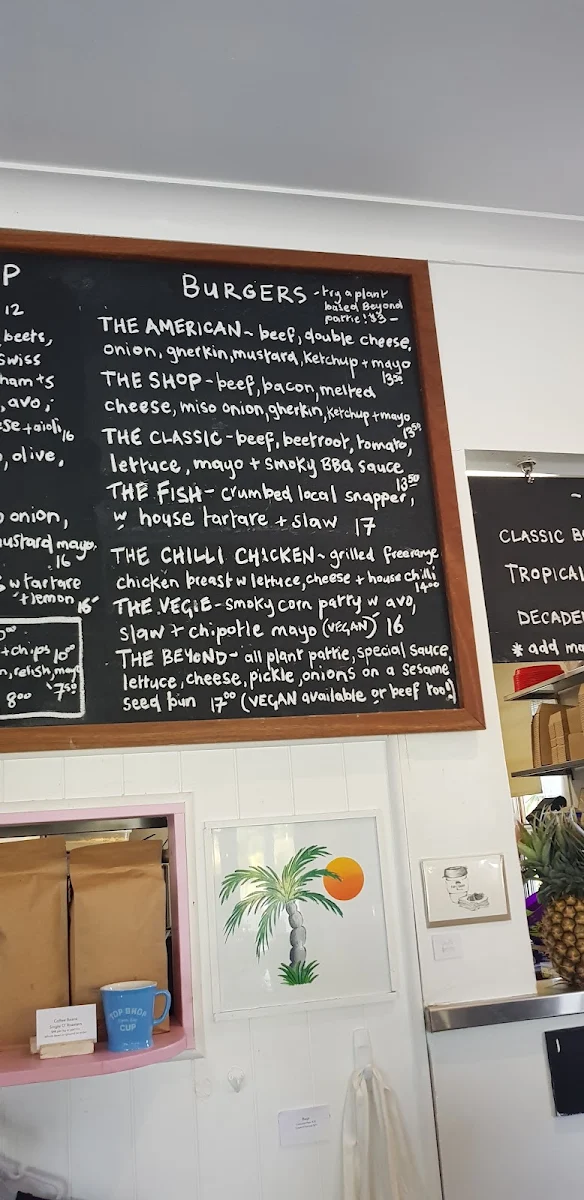 P
12
beets,
swiss
ham +s
, avo,
ese + aioli, 16
, olive,
onion,
mustard mayo,
16
w tartare
+ lemon 16
+ chips 10⁵⁰
n, relish, mayo
8⁰⁰ 7⁵⁰
BURGERS - try a plant
based Beyond
pattie! $3 -
THE AMERICAN ~ beef, double cheese,
onion, gherkin, mustard, ketchup + mayo
13⁵⁰
THE SHOP - beef, bacon, melted
cheese, miso onion, gherkin, ketchup + mayo
13⁵⁰
THE CLASSIC - beef, beetroot, tomato,
lettuce, mayo + smoky BBQ sauce
13⁵⁰
THE FISH - crumbed local snapper,
w house tartare + slaw 17
THE CHILLI CHICKEN ~ grilled freerange
chicken breast w lettuce, cheese + house chilli
14⁰⁰
THE VEGIE - smoky corn patty w avo,
slaw + chipotle mayo (VEGAN) 16
THE BEYOND - all plant pattie, special sauce,
lettuce, cheese, pickle, onions on a sesame
seed bun 17⁰⁰ (VEGAN available or beef too!)
CLASSIC B
TROPICAL
DECADE
* add ma
TOP SHOP
CUP